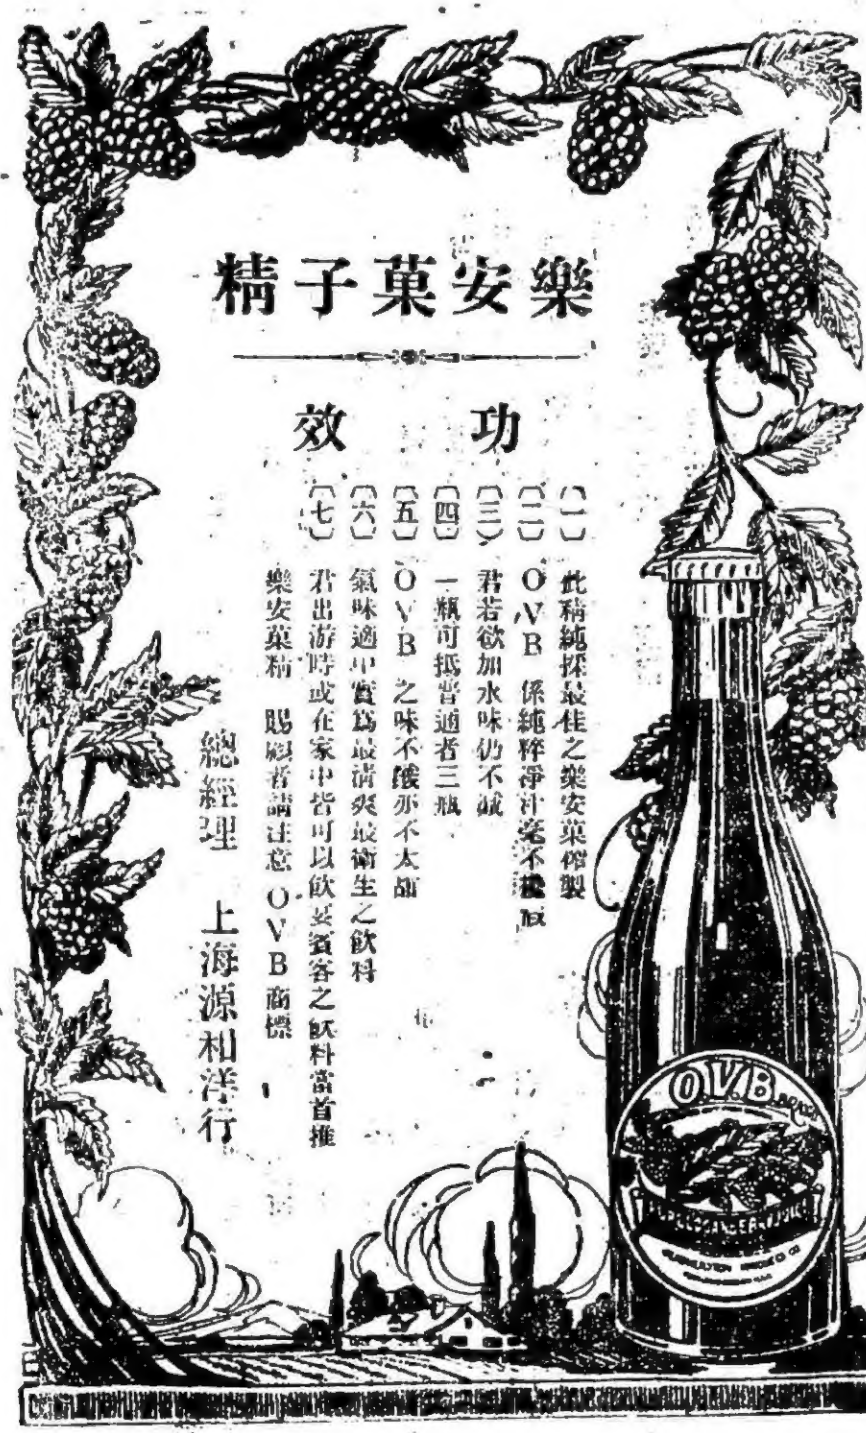 樂安菓子精
功效
〔一〕 此精純採最佳之樂安菓榨製
〔二〕 OVB 係純粹淨汁毫不攙
〔三〕 君若欲加水味仍不減
〔四〕 一瓶可抵普通者三瓶
〔五〕 OVB 之味不酸亦不太甜
〔六〕 氣味適中實爲最清爽最衛生之飲料
〔七〕 君出游時或在家中皆可以飲宴賓客之飲料當首推
樂安菓精 賜顧者請注意OVB商標
總經理 上海源和洋行
O.V.B.